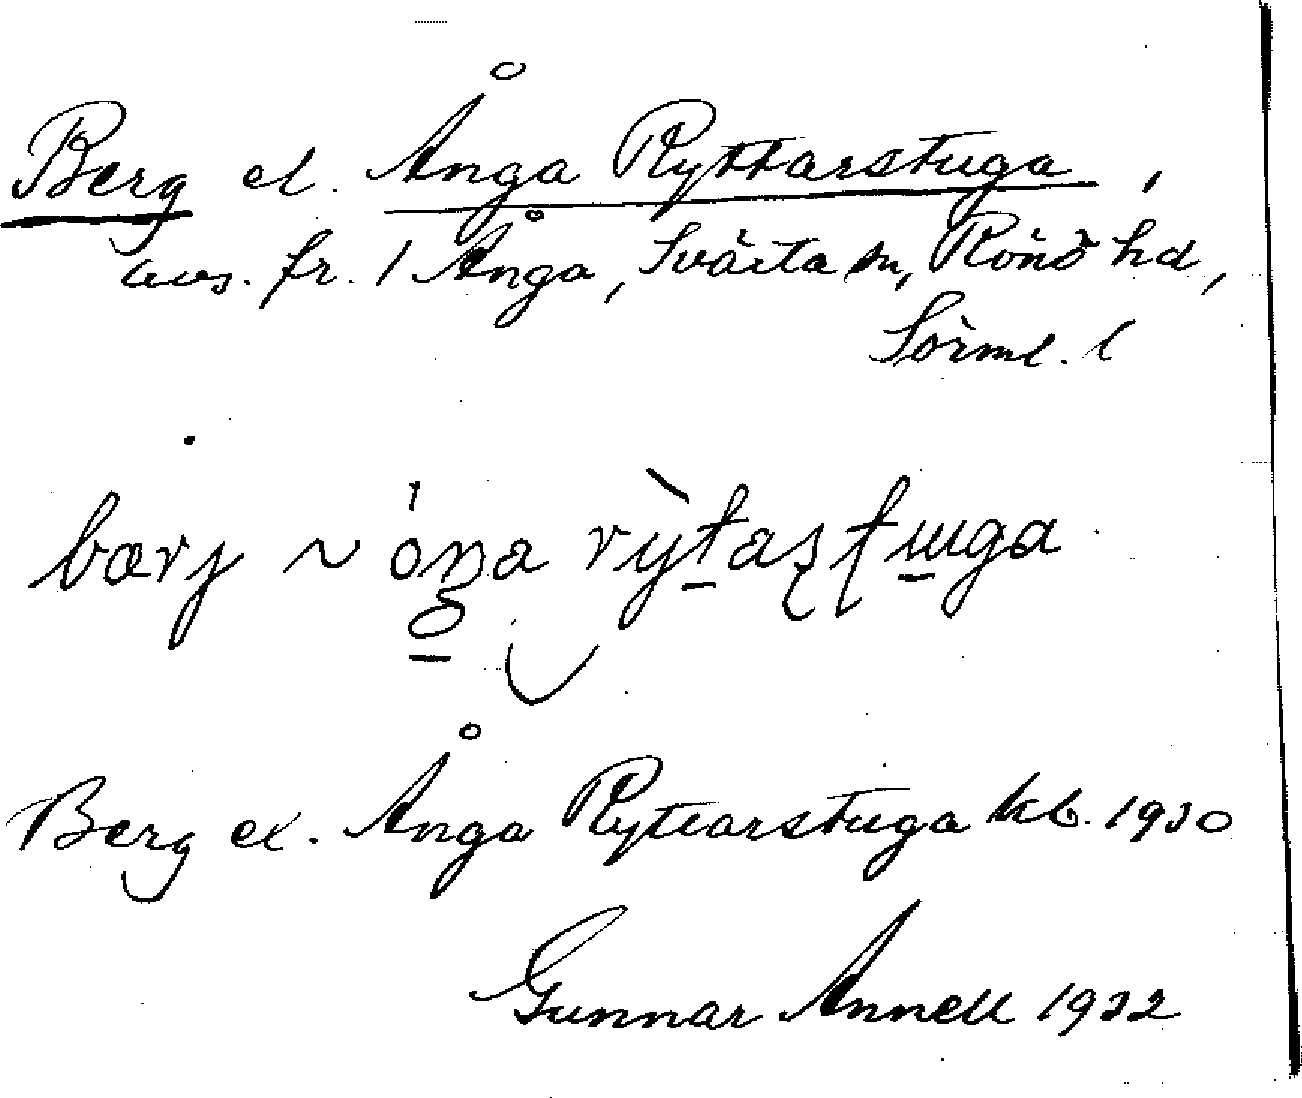 Berg el. Ånga Ryttarstuga,
avs. fr. 1 Ånga, Svärta sn, Rönö hd,
Sörml. l
bærj ~ óŋa rỳtaʂtuga
Berg el. Ånga Ryttarstuga kb. 1930
Gunnar Annell 1932